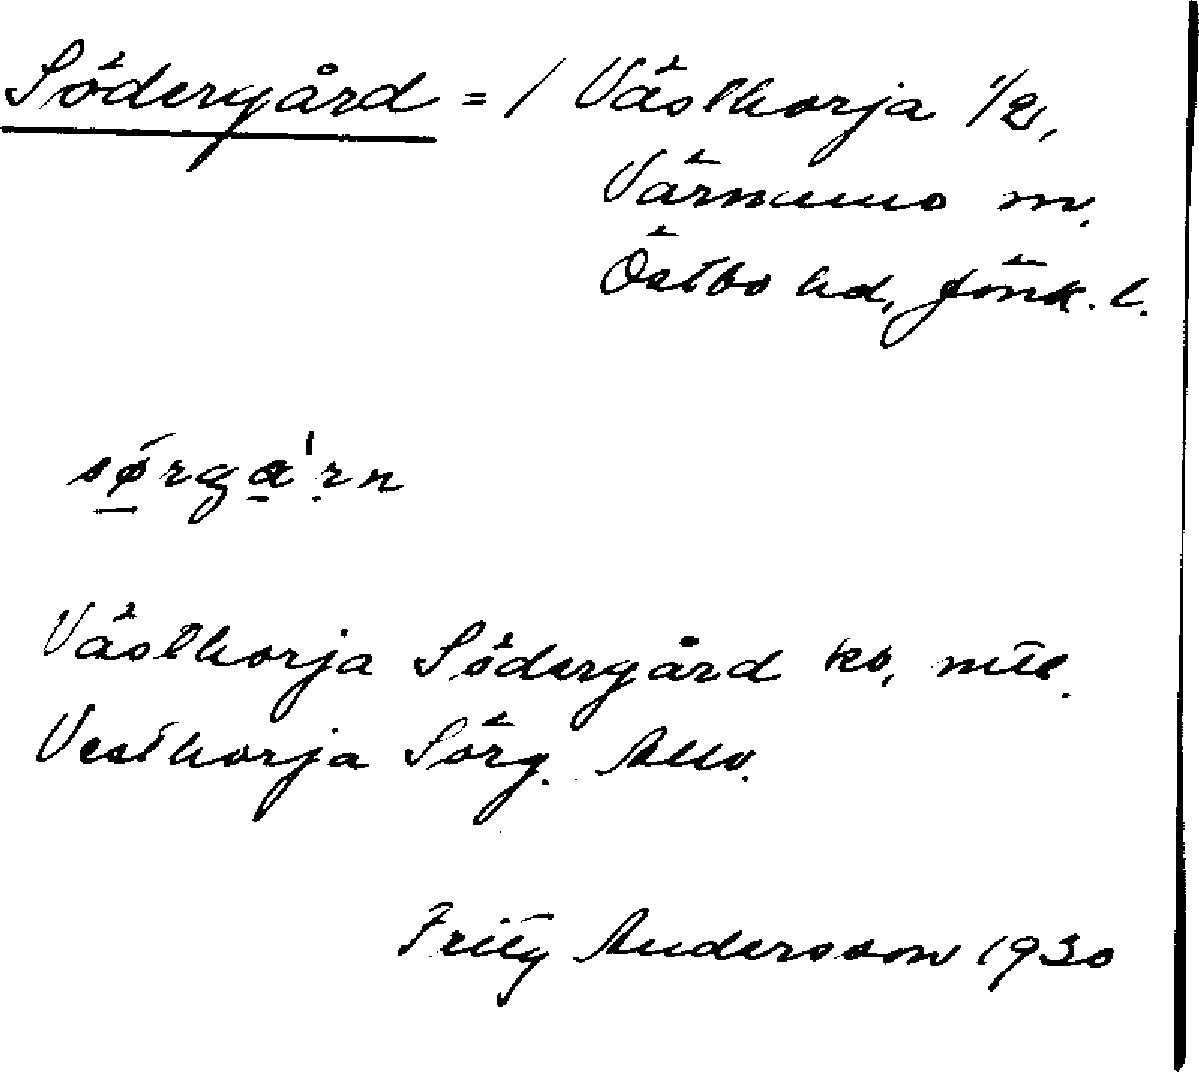 Södergård = / Västhorja 1/2,
Värnumo m.
Östbo hd, Jönk. l.
sørga'rn
Västhorja Södergård kb, mtl.
Vesthorja Sörg. Allv.
Fritz Andersson 1930